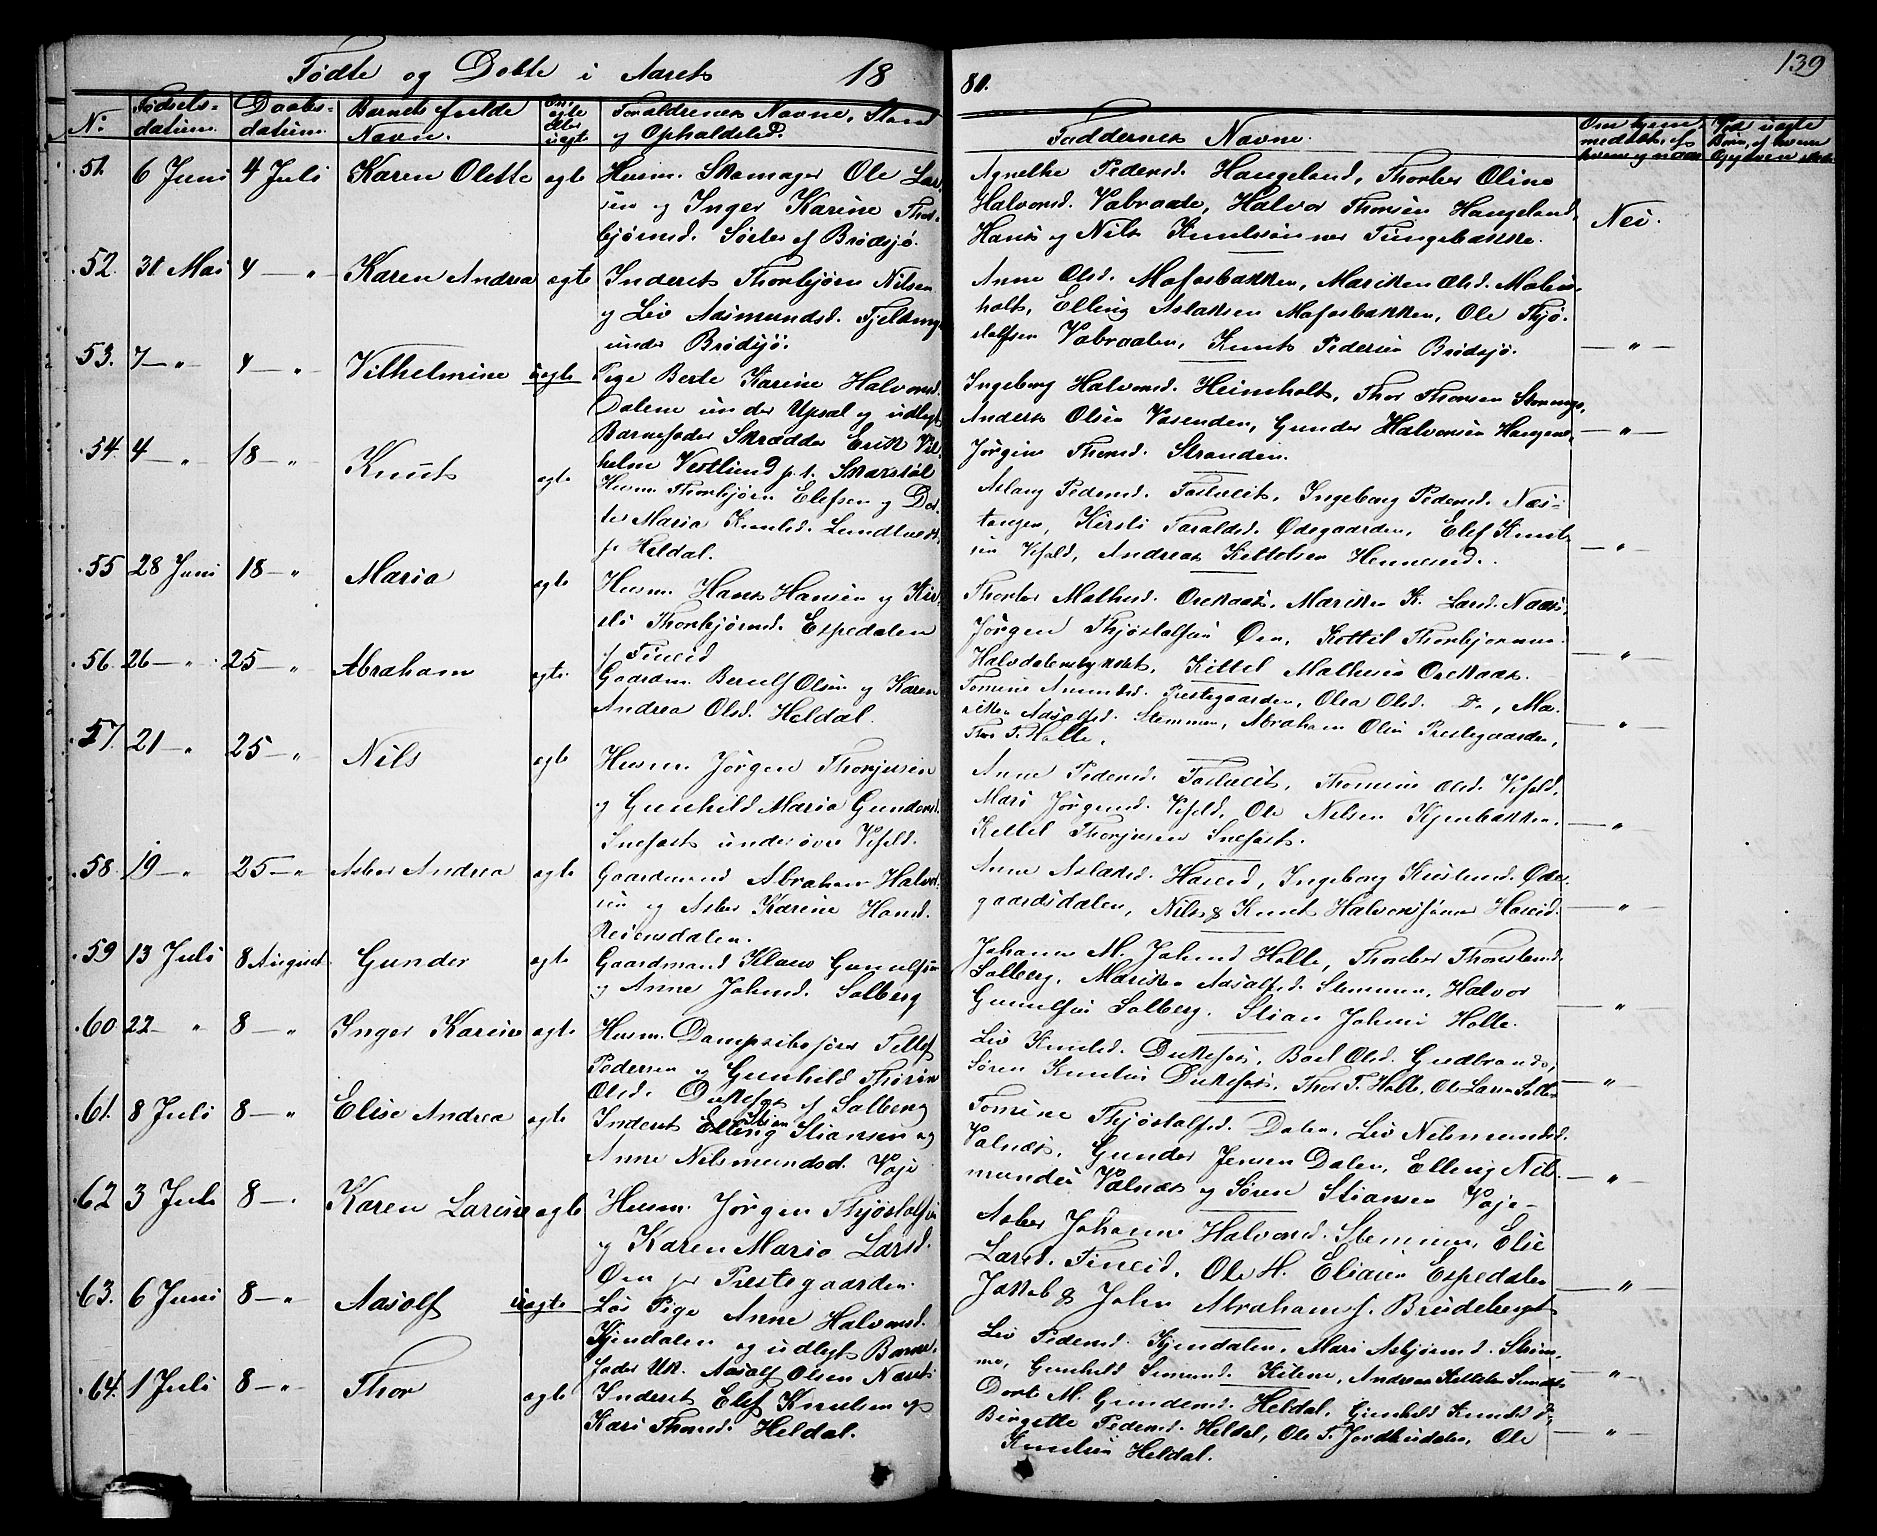 Födte og Döbte i Aaret 18
80.
139
No
Födsels-
datum.
Daabs-
datum.
Barnets fulde
Navn.
Om
ægte
eller
uægte
Foraldrenes Navne, Stand
og Opholdsted.
Faddernes Navne.
Om hjemme-
medöbt, af
hvem og naar
Ved uægte
Börn, af hvem
Opgaven
51. 6 Juni 4 Juli Karen Olette ægte Husm. Skomager Ole Lar-
sen og Inger Karine Thor-
björnsd. Sörlee af Brödsjö.
Agnethe Pedersd. Haugeland, Thorber Oline
Halvorsd. Vabraate, Halvor Thorsen Haugeland,
Hans og Nils Knutsönner Tungebakke.
Nei.
52. 31 Mai 4 — " Karen Andrea ægte Inderst Thorbjörn Nilsen
og Liv Aasmundsd. Fjeldmyr
under Brödsjö.
Anne Olsd. Mofosbakken, Mariken Olsd. Molin-
holt, Elling Aslaksen Mofosbakken, Ole Thjö-
stolfsen Vabraaten, Knut Pedersen Brödsjö.
— " —
53. 7 — " 4 — " Vilhelmine uægte Pige Berte Karine Halvorsd.
Dalene under Upsal og udlagt
Barnefader Skrædder Erik Vil-
helm Vestlund p. t. Skarstöl
Ingeborg Halvorsd. Heimholt, Thor Thorsen
Anders Olsen Vasenden, Gunder Halvorsen
Jörgine Thorsd. Stranden.
— " —
54. 4 — " 18 — " Knut ægte Husm. Thorbjörn Elefsen og Dor-
te Maria Knutsd. Lundtveit
p. Heldal.
Aslaug Pedersd. Fostveit, Ingeborg Pedersd. Næs-
tangen, Kirsti Taraldsd. Ödegaarden, Elef Knut-
sen Vefald, Andreas Kittelsen Hennesend.
— " —
55 28 Juni 18 — " Maria ægte Husm. Hans Hansen og Kir-
sti Thorbjörnsd. Espedalen
p. Fineid
Thorber Mathisd. Orekaas, Mariken K. Larsd.
Jörgen Thjöstolfsen Öen, Kittil Thorbjörnsen
Halvdalensbykset, Kittel Mathisen Orekaas.
— " —
56. 26 — " 25 — " Abraham ægte. Gaardm. Berulf Olsen og Karen
Andrea Olsd. Heldal.
Tomine Amundsd. Prestegaarden, Olea Olsd. Do, Ma-
riken Aasolfsd. Stemmen, Abraham Olsen Prestegaarden,
Thor T. Holte,
— " —
57. 21 — " 25 — " Nils ægte Husm. Jörgen Thorjussen
og Gunhild Maria Gundersd.
Snefost under övre Vefald.
Anne Pedersd. Fostveit, Thomine Olsd. Vefald,
Mari Jörgensd. Vefald, Ole Nilsen Kjenbakken,
Kittel Thorjusen Snefost.
— " —
58. 19 — " 25 — " Asber Andrea ægte Gaardmand Abraham Halvor-
sen og Asber Karine Hansd.
Reiersdalen.
Anne Aslaksd. Haseid, Ingeborg Knutsd. Öde-
gaardsdalen, Nils & Knut Halvorsönner Haseid.
— " —
59 13 Juli 8 August. Gunder ægte Gaardmand Klaus Gunulfsen
og Anne Johnsd. Solberg
Johanne M. Johnsd Holte, Thorber Thorstensd.
Solberg, Mariken Aasolfsd. Stemmen, Halvor
Gunulfsen Solberg, Stian Johnsen Holte.
— " —
60. 22 — " 8 — " Inger Karine ægte Husm. Dampskibsförer Tellef
Pedersen og Gunhild Thorine
Olsd. Dukefos af Solberg
Liv Knutsd. Dukefos, Boel Olsd.
Sören Knutsen Dukefos, Thor T. Holte, Ole Larsen
— " —
61. 8 Juli 8 — " Elise Andrea ægte Inderst Elling Stiansen og
Anne Nilsmundsd. Voje
Tomine Thjöstolfsd. Dalen, Liv Nilsmundsd.
Valnæs, Gunder Jensen Dalen, Elling Nils-
mundsen Valnæs og Sören Stiansen Voje.
— " —
62 3 Juli 8 — " Karen Larine ægte Husm. Jörgen Thjöstolfsen
og Karen Maria Larsd.
Öen p. Prestegaarden.
Asber Johanne Halvorsd. Stemmen, Elie
Larsd. Fineid, Ole H. Eliasen Espedalen
Jakob & John Abrahams s. Brudeberget
— " —
63. 6 Juni 8 — " Aasolf uægte Lös Pige Anne Halvorsd.
Kjendalen og udlagt Barne-
fader Uk. Aasolf Olsen Næset
Liv Pedersd. Kjendalen, Mari Asbjörnsd. Stem-
me, Gunhild Simunsd. Kilene, Andreas Kittelsen
— " —
64. 1 Juli 8 — " Thor ægte Inderst Elef Knutsen og
Kari Thorsd. Heldal.
Dorte M. Gundersd. Heldal, Gunhild Knutsd. Do
Birgitte Pedersd. Heldal, Ole T. Jordkudalen, Ole
Knutsen Heldal.
— " —